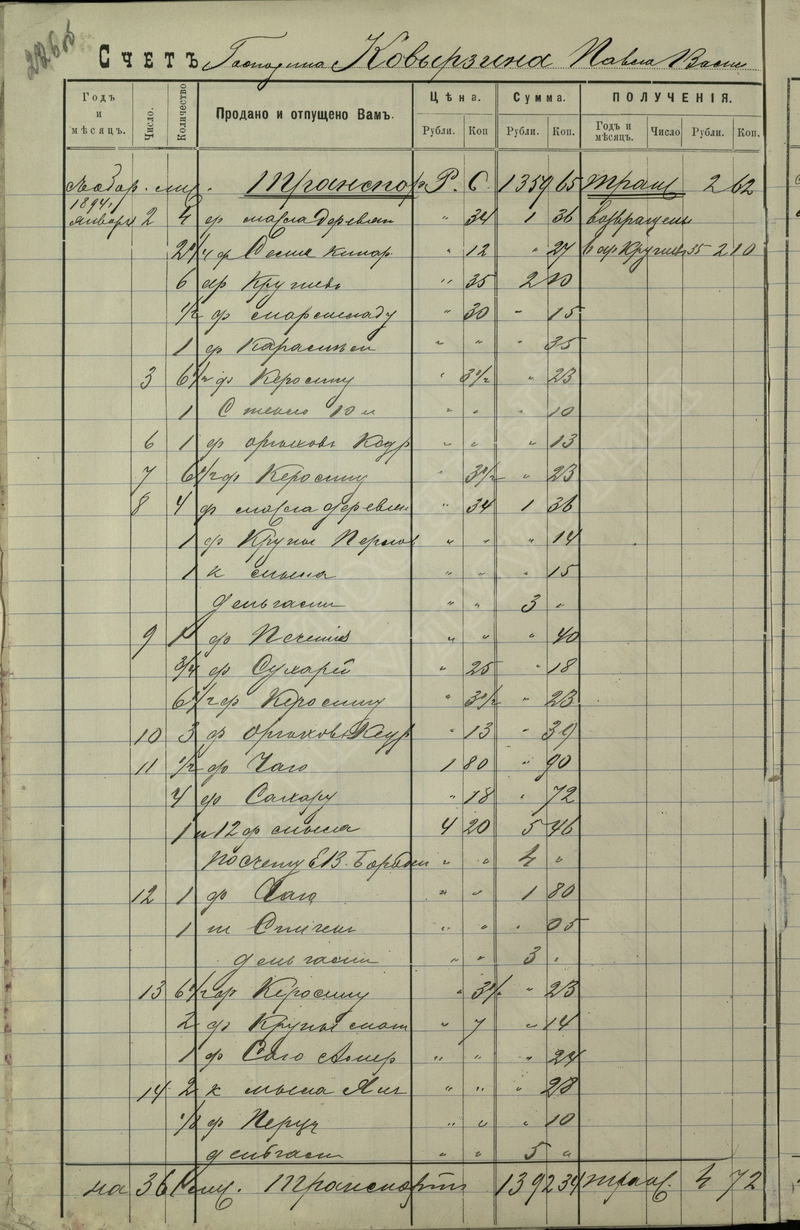 2265
Счетъ Господина Ковырзина Павла Васил
Годъ и мѣсяцъ. Число. Количество Продано и отпущено Вамъ. Цѣна. Рубли. Коп Сумма. Рубли. Коп. ПОЛУЧЕНІЯ. Годъ и мѣсяцъ. Число Рубли. Коп.
Транспор Р. С. 1359 65 Тран 2 62
1894
января 2 4 ф масла деревян " 34 1 36 возвращены
2 1/4 ф " 12 " 27 6 ар Кружев 35 2 10
6 ар Кружевъ " 35 2 10
1/2 ф мармеладу " 30 " 15
1 ф Карамели " " " 35
3 6 1/2 ф Керосину " 3 1/2 " 23
1 Стекло 10 л " " " 10
6 1 ф орѣховъ Кедр " " " 13
7 6 1/2 ф Керосину " 3 1/2 " 23
8 4 ф масла деревян " 34 1 36
1 ф Крупы Перлов " " " 14
1 к мыла " " " 15
деньгами " " 3 "
9 1 ф Печенья " " " 40
3/4 ф Сухарей " 25 " 18
6 1/2 ф Керосину " 3 1/2 " 23
10 3 ф орѣховъ Кедр " 13 " 39
11 1/2 ф Чаю 1 80 " 90
4 ф Сахару " 18 " 72
1 п 12 ф мыла 4 20 5 46
по счету " " 4 "
12 1 ф Чаю " " 1 80
1 п Спичекъ " " " 05
деньгами " " 3 "
13 6 1/2 ф Керосину " 3 1/2 " 23
2 ф Крупы " 7 " 14
1 ф Саго " " " 24
14 2 к мыла Яич " " " 28
1/8 ф Перцу " " " 10
деньгами " " 5 "
на 361 стр. Транспортъ 1392 34 Тран. 4 72